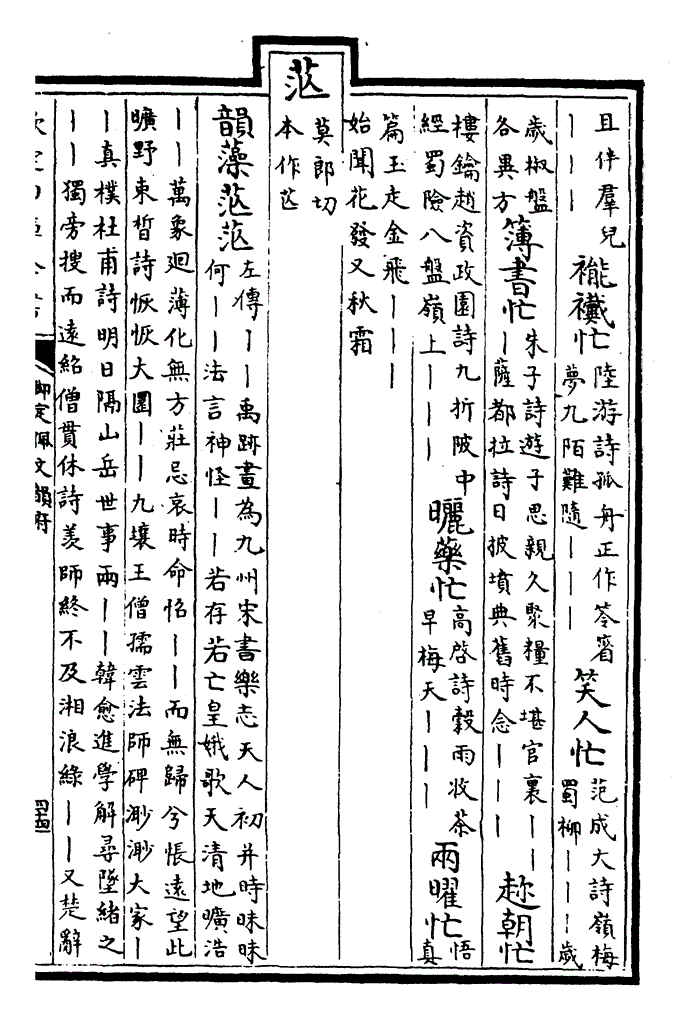 且伴羣兒
｜｜｜
襱襶忙
陸游詩孤舟正作笭箵
夢九陌難隨｜｜｜
笑人忙
范成大詩嶺梅
蜀柳｜｜｜歲
歲椒盤
各異方
簿書忙
朱子詩遊子思親久聚糧不堪官裏｜｜
｜薩都拉詩日披墳典舊時念｜｜｜
趂朝忙
樓鑰趙資政園詩九折陂中
經蜀險八盤嶺上｜｜｜
曬藥忙
高啓詩穀雨收茶
早梅天｜｜｜
兩曜忙
悟
真
篇玉走金飛｜｜｜
始聞花發又秋霜
茫
莫郎切
本作𦬆
韻藻茫茫
左傳｜｜禹跡畫為九州宋書樂志天人初并時昧昧
何｜｜法言神怪｜｜若存若亡皇娥歌天清地曠浩
｜｜萬象迴薄化無方莊忌哀時命怊｜｜而無歸兮悵遠望此
曠野束晳詩恢恢大圜｜｜九壤王僧孺雲法師碑渺渺大家｜
｜真樸杜甫詩明日隔山岳世事兩｜｜韓愈進學解尋墜緒之
｜｜獨旁搜而遠紹僧貫休詩羨師終不及湘浪綠｜｜又楚辭
欽定四庫全書
御定佩文韻府